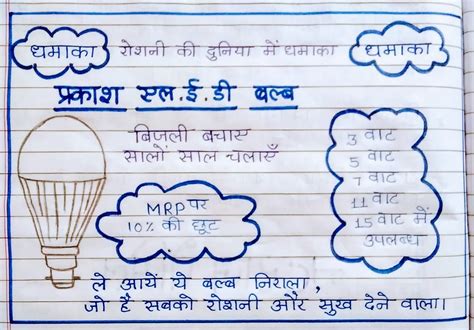 धमाका रोशनी की दुनिया में धमाका धमाका
प्रकाश एल.ई.डी बल्ब
बिजली बचाए
सालों साल चलाएँ
MRP पर
10% की छूट
3 वाट
5 वाट
7 वाट
11 वाट
15 वाट में
उपलब्ध
ले आयें ये बल्ब निराला,
जो है सबको रोशनी और सुख देने वाला।